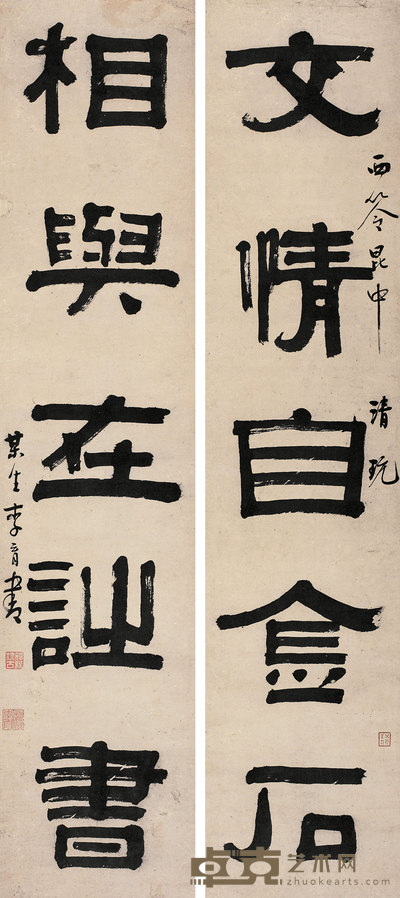 西泠昆中 清玩
文情自金石
相與在詩書
某生李育書
卓克艺术网
zhuokearts.com